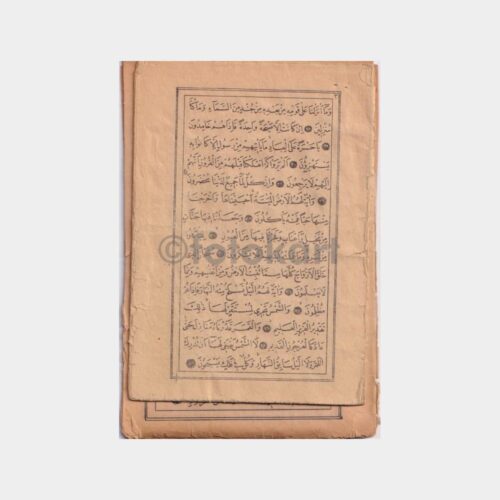 وما انزلنا على قومه من بعده من جند من السماء وما كنا
منزلين ۝ ان كانت الا صيحة واحدة فاذا هم خامدون
۝ يا حسرة على العباد ما يأتيهم من رسول الا كانوا به
يستهزؤن ۝ الم يروا كم اهلكنا قبلهم من القرون انهم
اليهم لا يرجعون ۝ وان كل لما جميع لدينا محضرون
۝ وآية لهم الارض الميتة احييناها واخرجنا
منها حبا فمنه يأكلون ۝ وجعلنا فيها جنات
من نخيل واعناب وفجرنا فيها من العيون ۝
©fotokart
خلق الازواج كلها مما تنبت الارض ومن انفسهم ومما
لا يعلمون ۝ وآية لهم الليل نسلخ منه النهار فاذا هم
مظلمون ۝ والشمس تجري لمستقر لها ذلك
تقدير العزيز العليم ۝ والقمر قدرناه منازل حتى
عاد كالعرجون القديم ۝ لا الشمس ينبغي لها ان تدرك
القمر ولا الليل سابق النهار وكل في فلك يسبحون ۝